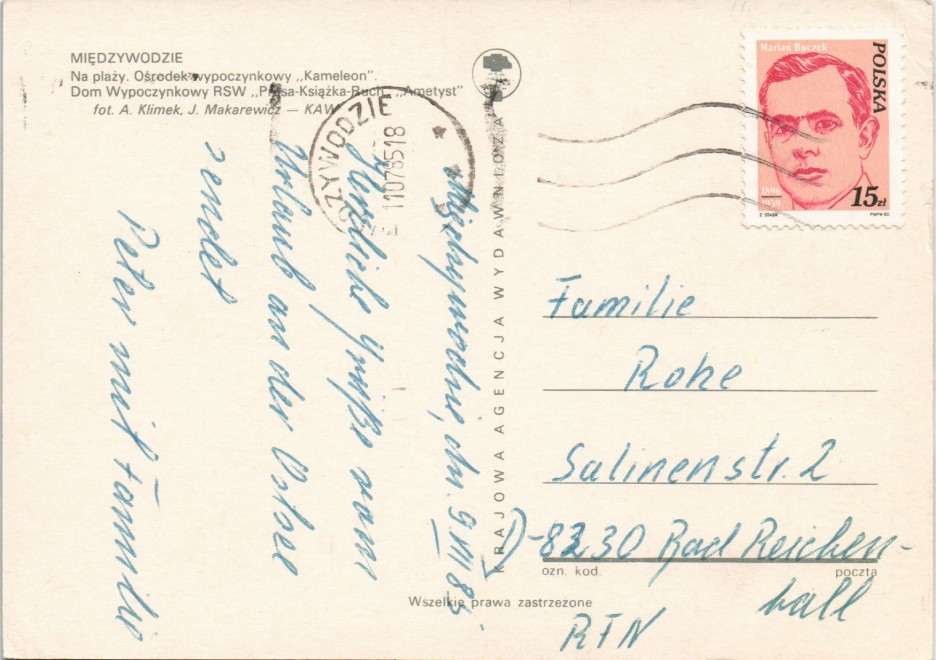 MIĘDZYWODZIE
Na plaży. Ośrodek wypoczynkowy „Kameleon".
Dom Wypoczynkowy RSW „Prasa-Książka-Ruch" „Ametyst"
fot. A. Klimek, J. Makarewicz — KAW
DZYWODZIE
11078518
KRAJOWA AGENCJA WYDAWNICZA
Marian Buczek
POLSKA
1896
1939
15zł
PWPW 82
Międzywodzie, dn. 9.VII.85
Herzliche Grüße vom
Urlaub an der Ostsee
sendet
Peter mit Familie
Familie
Rohe
Salinenstr. 2
D-8230 Bad Reichen-
hall
RFN
ozn. kod.
poczta
Wszelkie prawa zastrzeżone